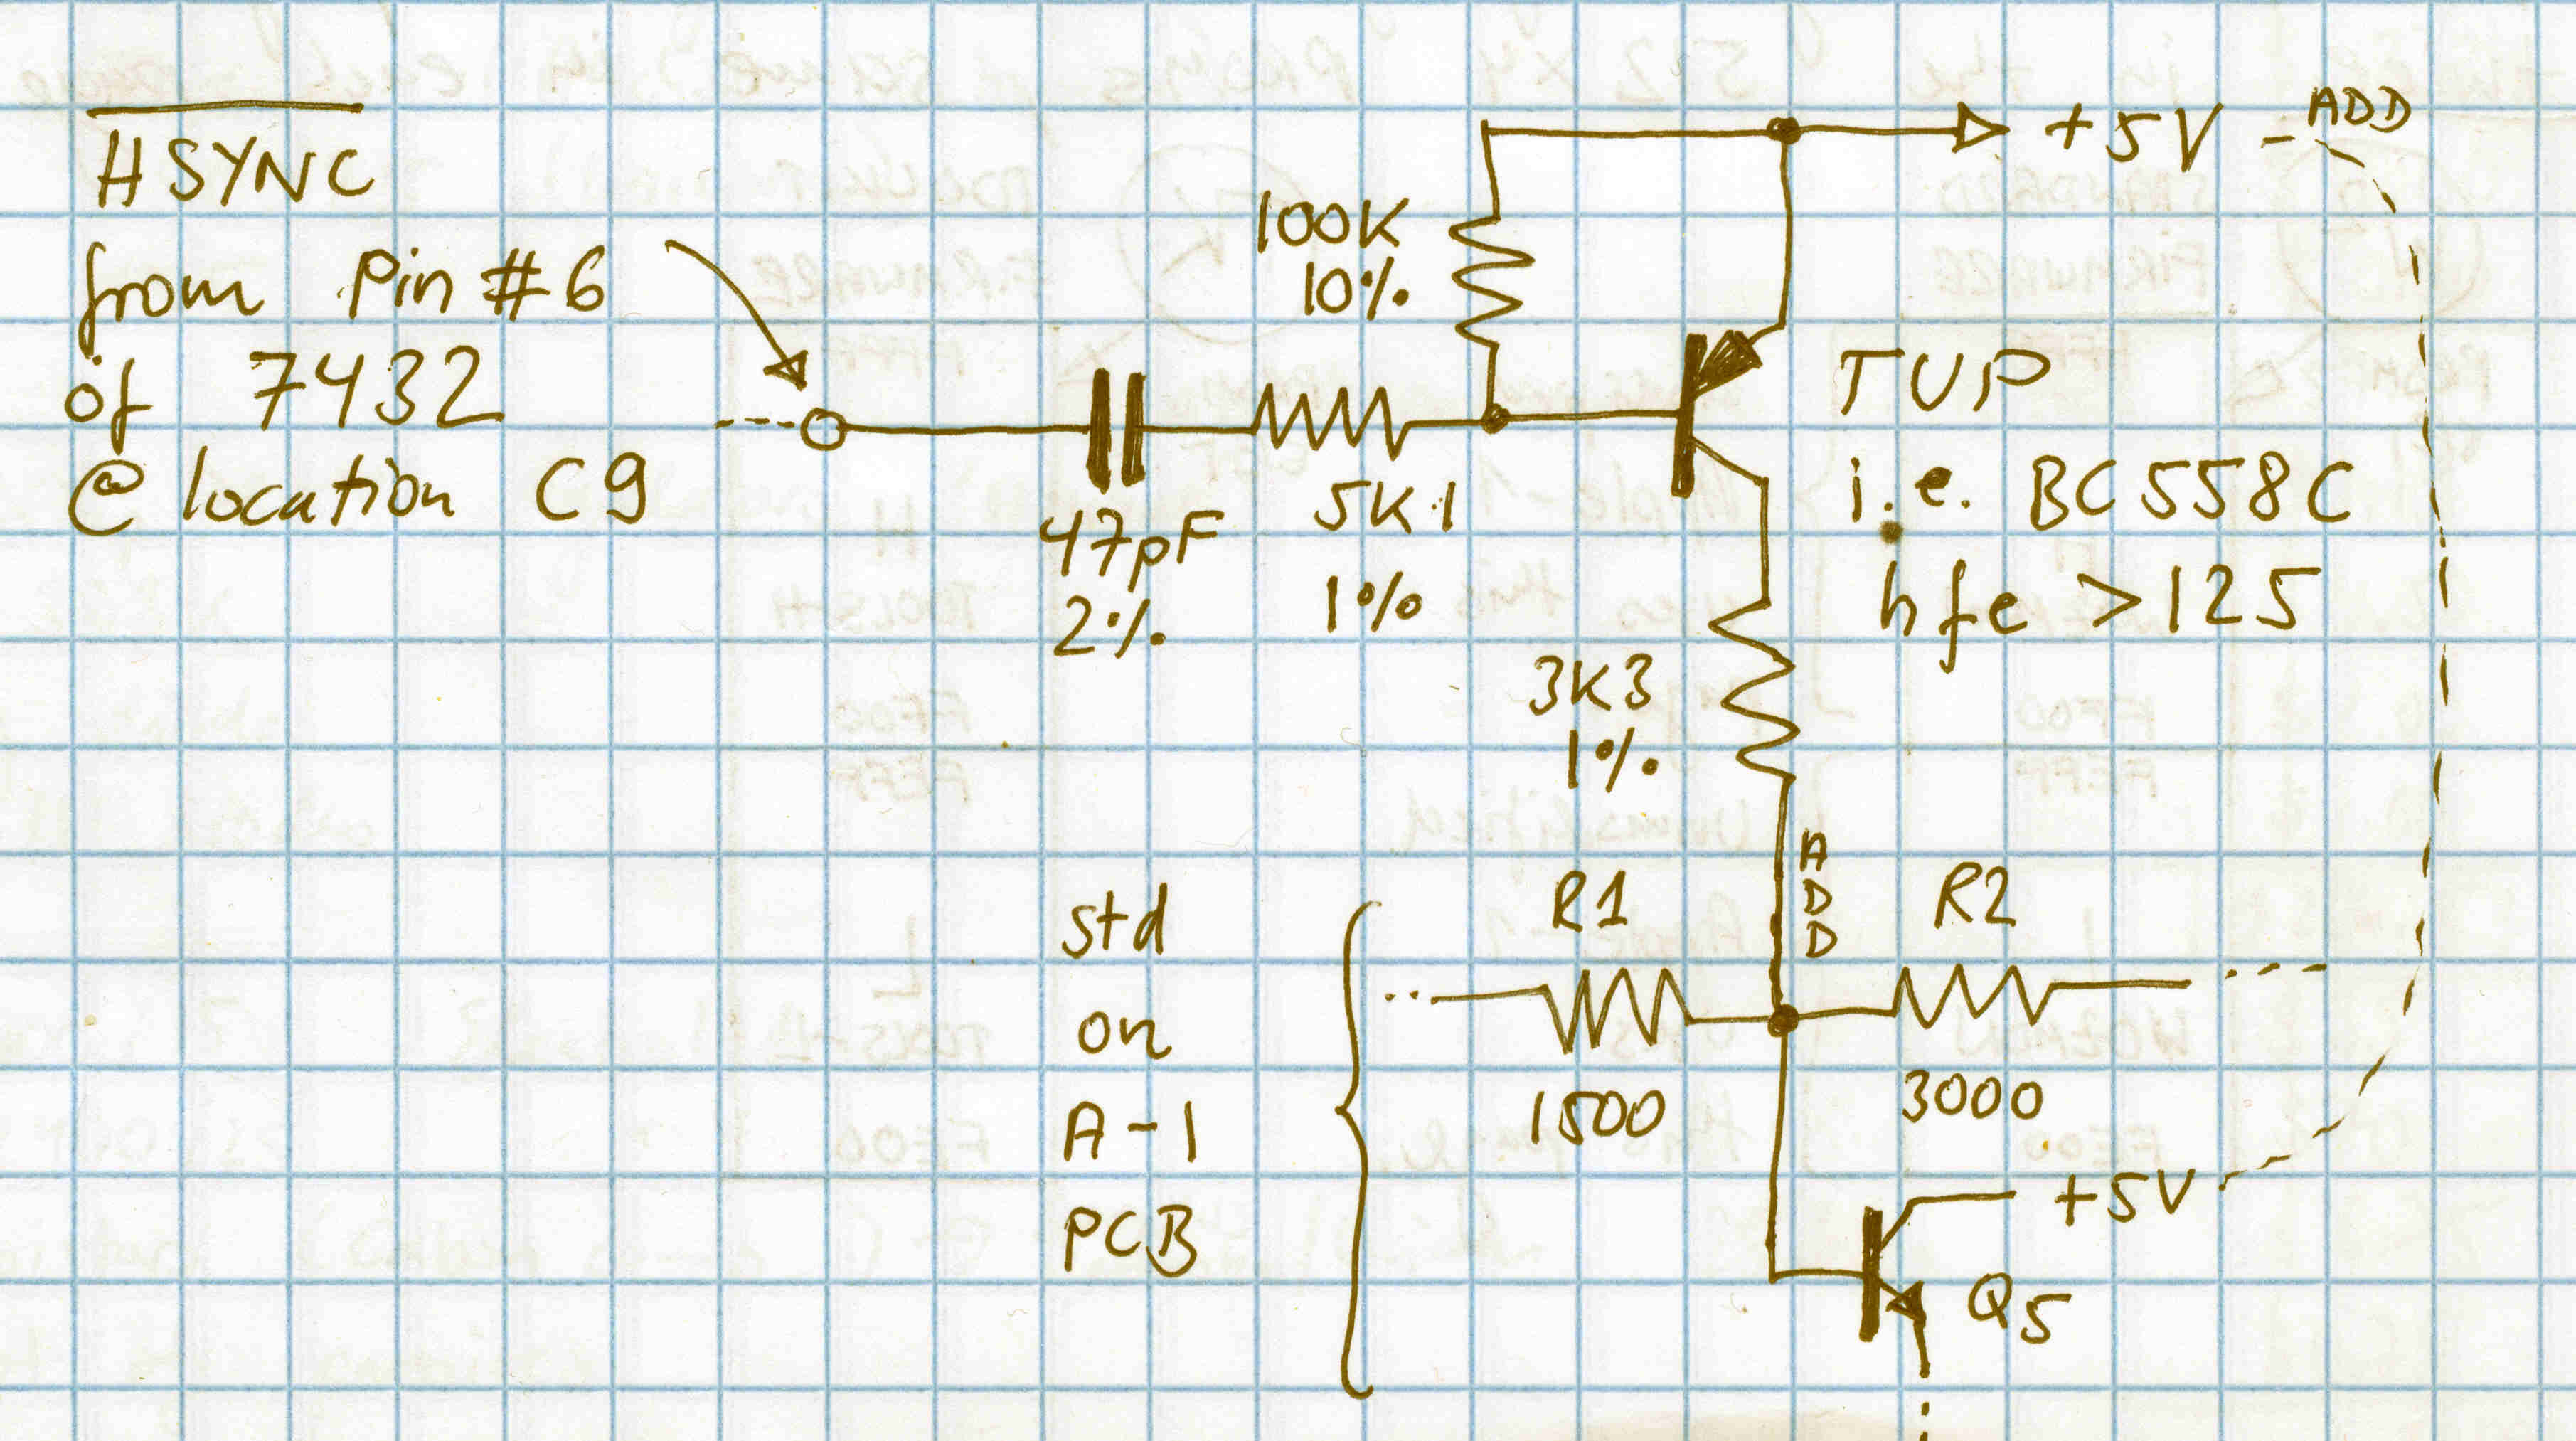 HSYNC
from Pin #6
of 7432
@ location C9
47pF
2%
5K1
1%
100K
10%
+5V
ADD
TUP
i.e. BC558C
hfe >125
3K3
1%
ADD
std
on
A-1
PCB
R1
1500
R2
3000
+5V
Q5